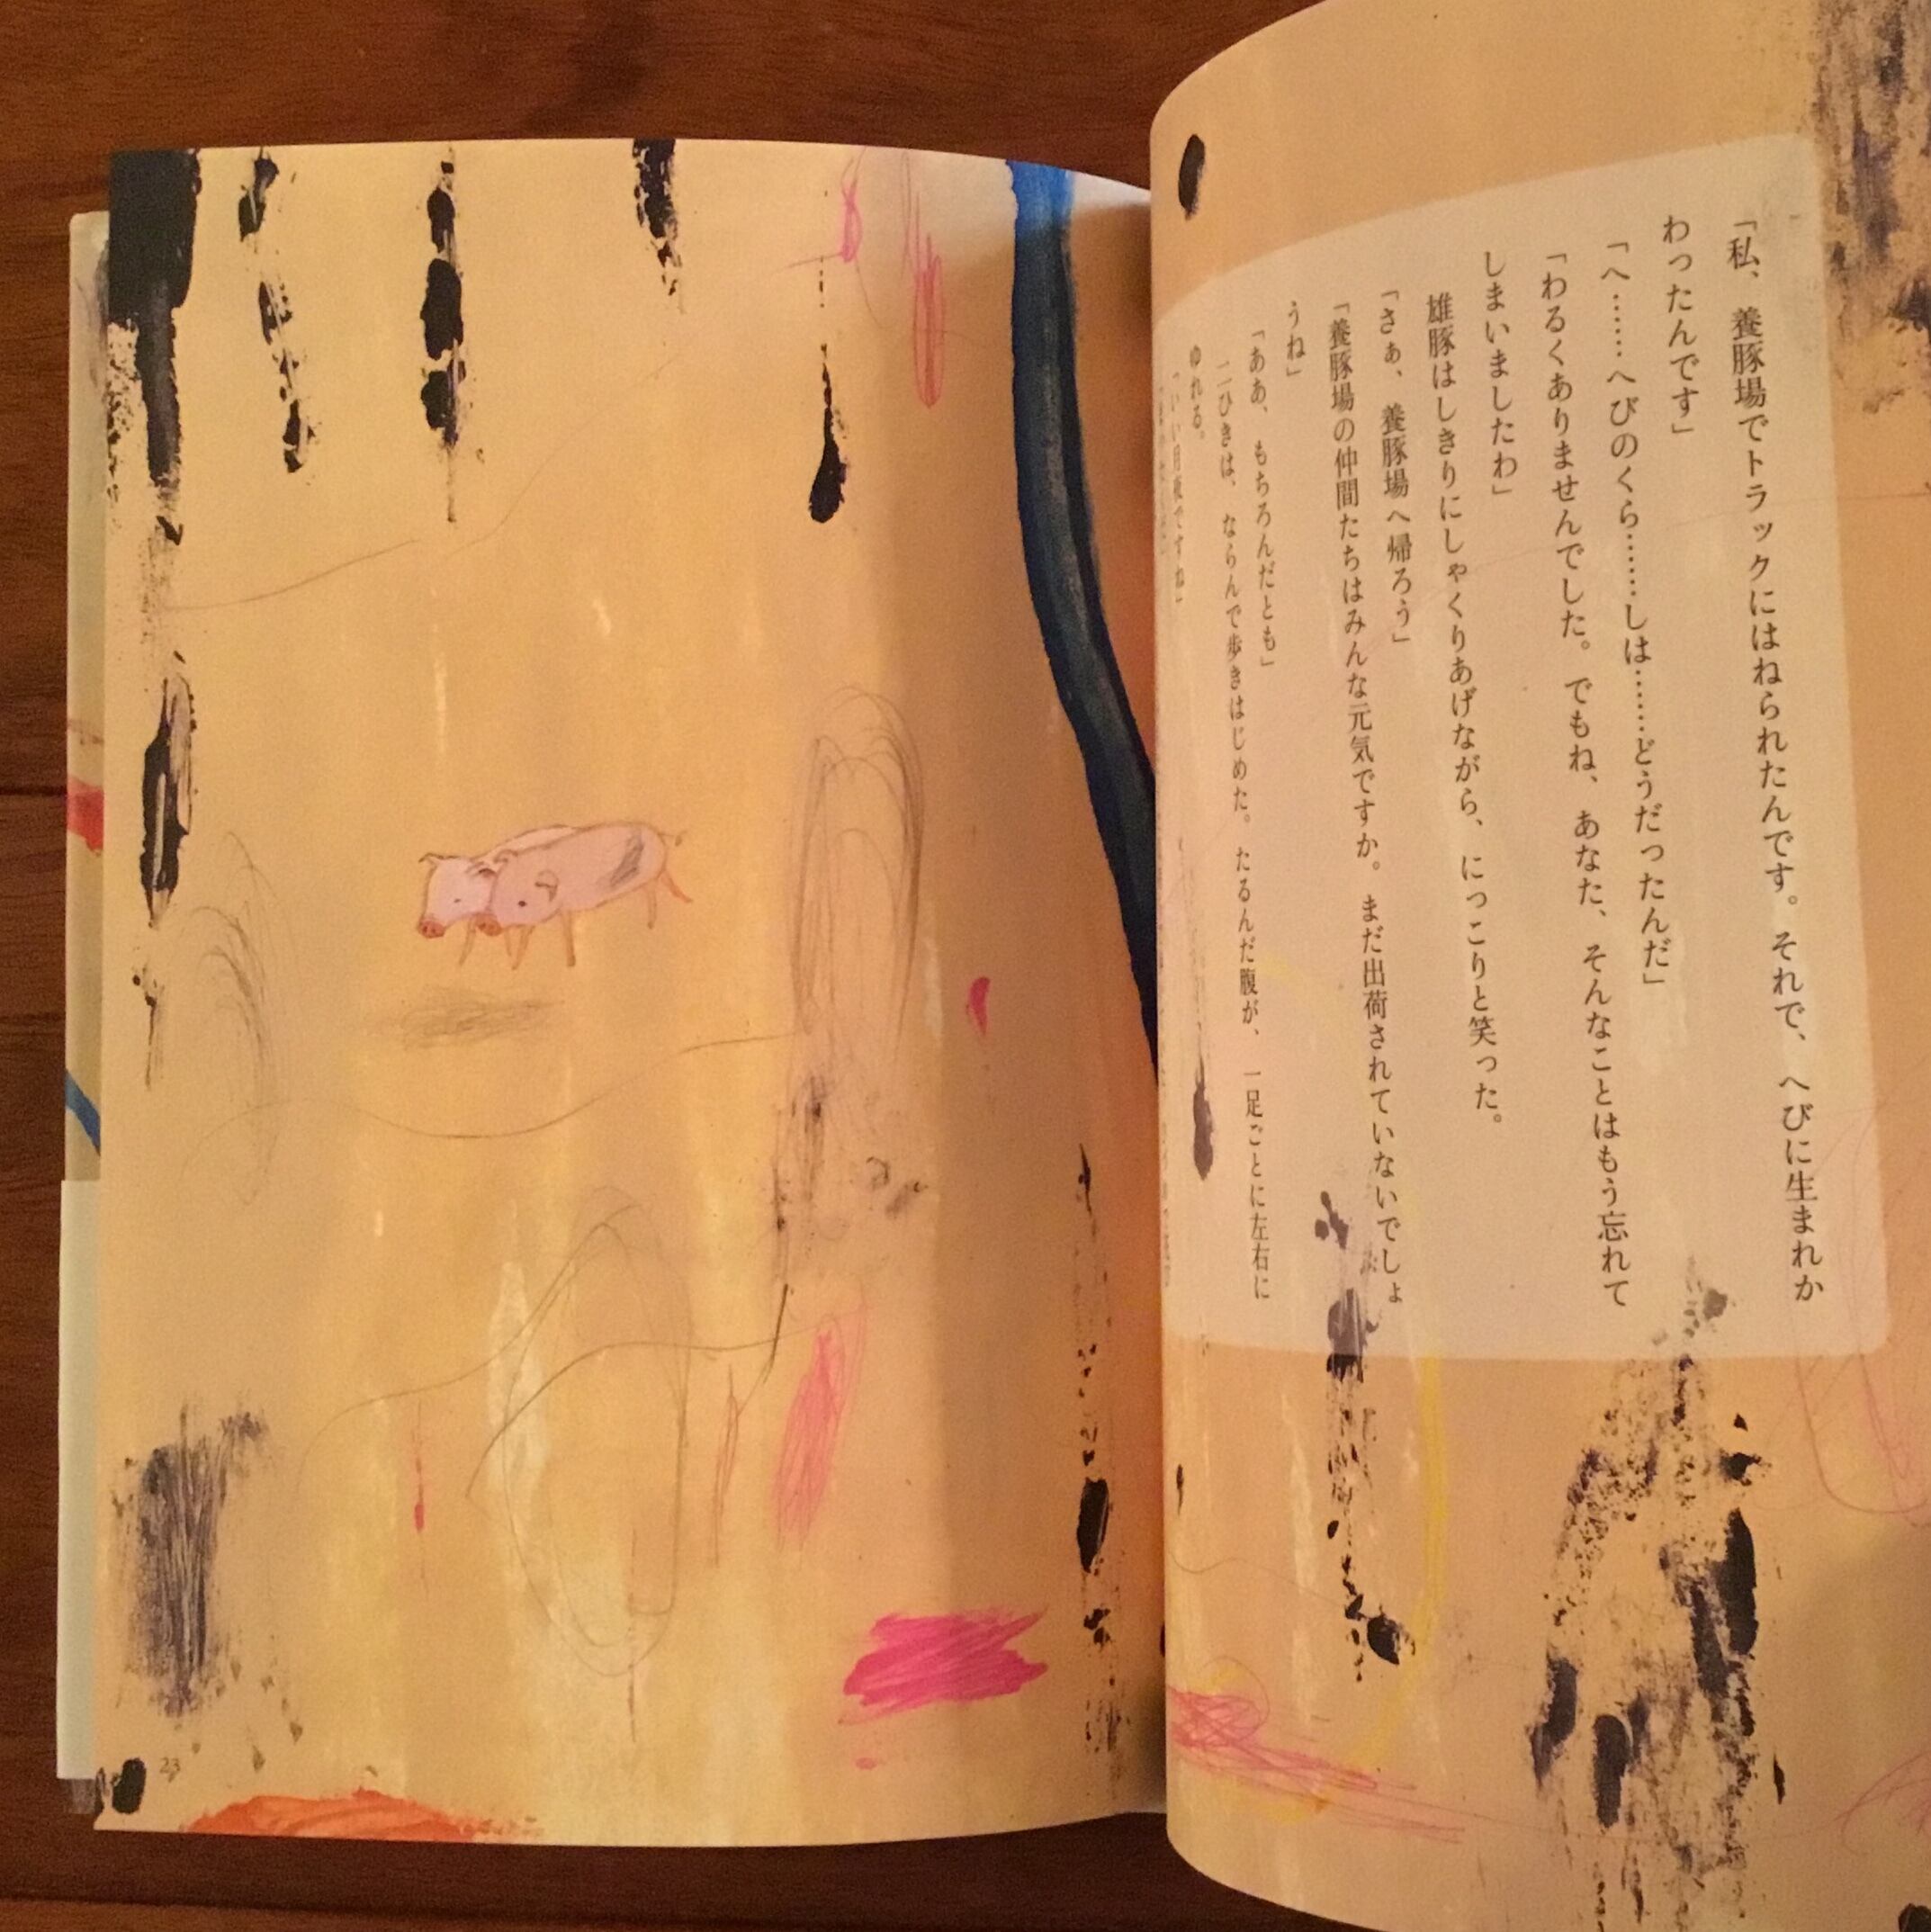 「私、養豚場でトラックにはねられたんです。それで、へびに生まれか
わったんです」
「へ……へびのくら……しは……どうだったんだ」
「わるくありませんでした。でもね、あなた、そんなことはもう忘れて
しまいましたわ」
雄豚はしきりにしゃくりあげながら、にっこりと笑った。
「さぁ、養豚場へ帰ろう」
「養豚場の仲間たちはみんな元気ですか。まだ出荷されていないでしょ
うね」
「ああ、もちろんだとも」
二ひきは、ならんで歩きはじめた。たるんだ腹が、一足ごとに左右に
ゆれる。
「いい月夜ですね」
23